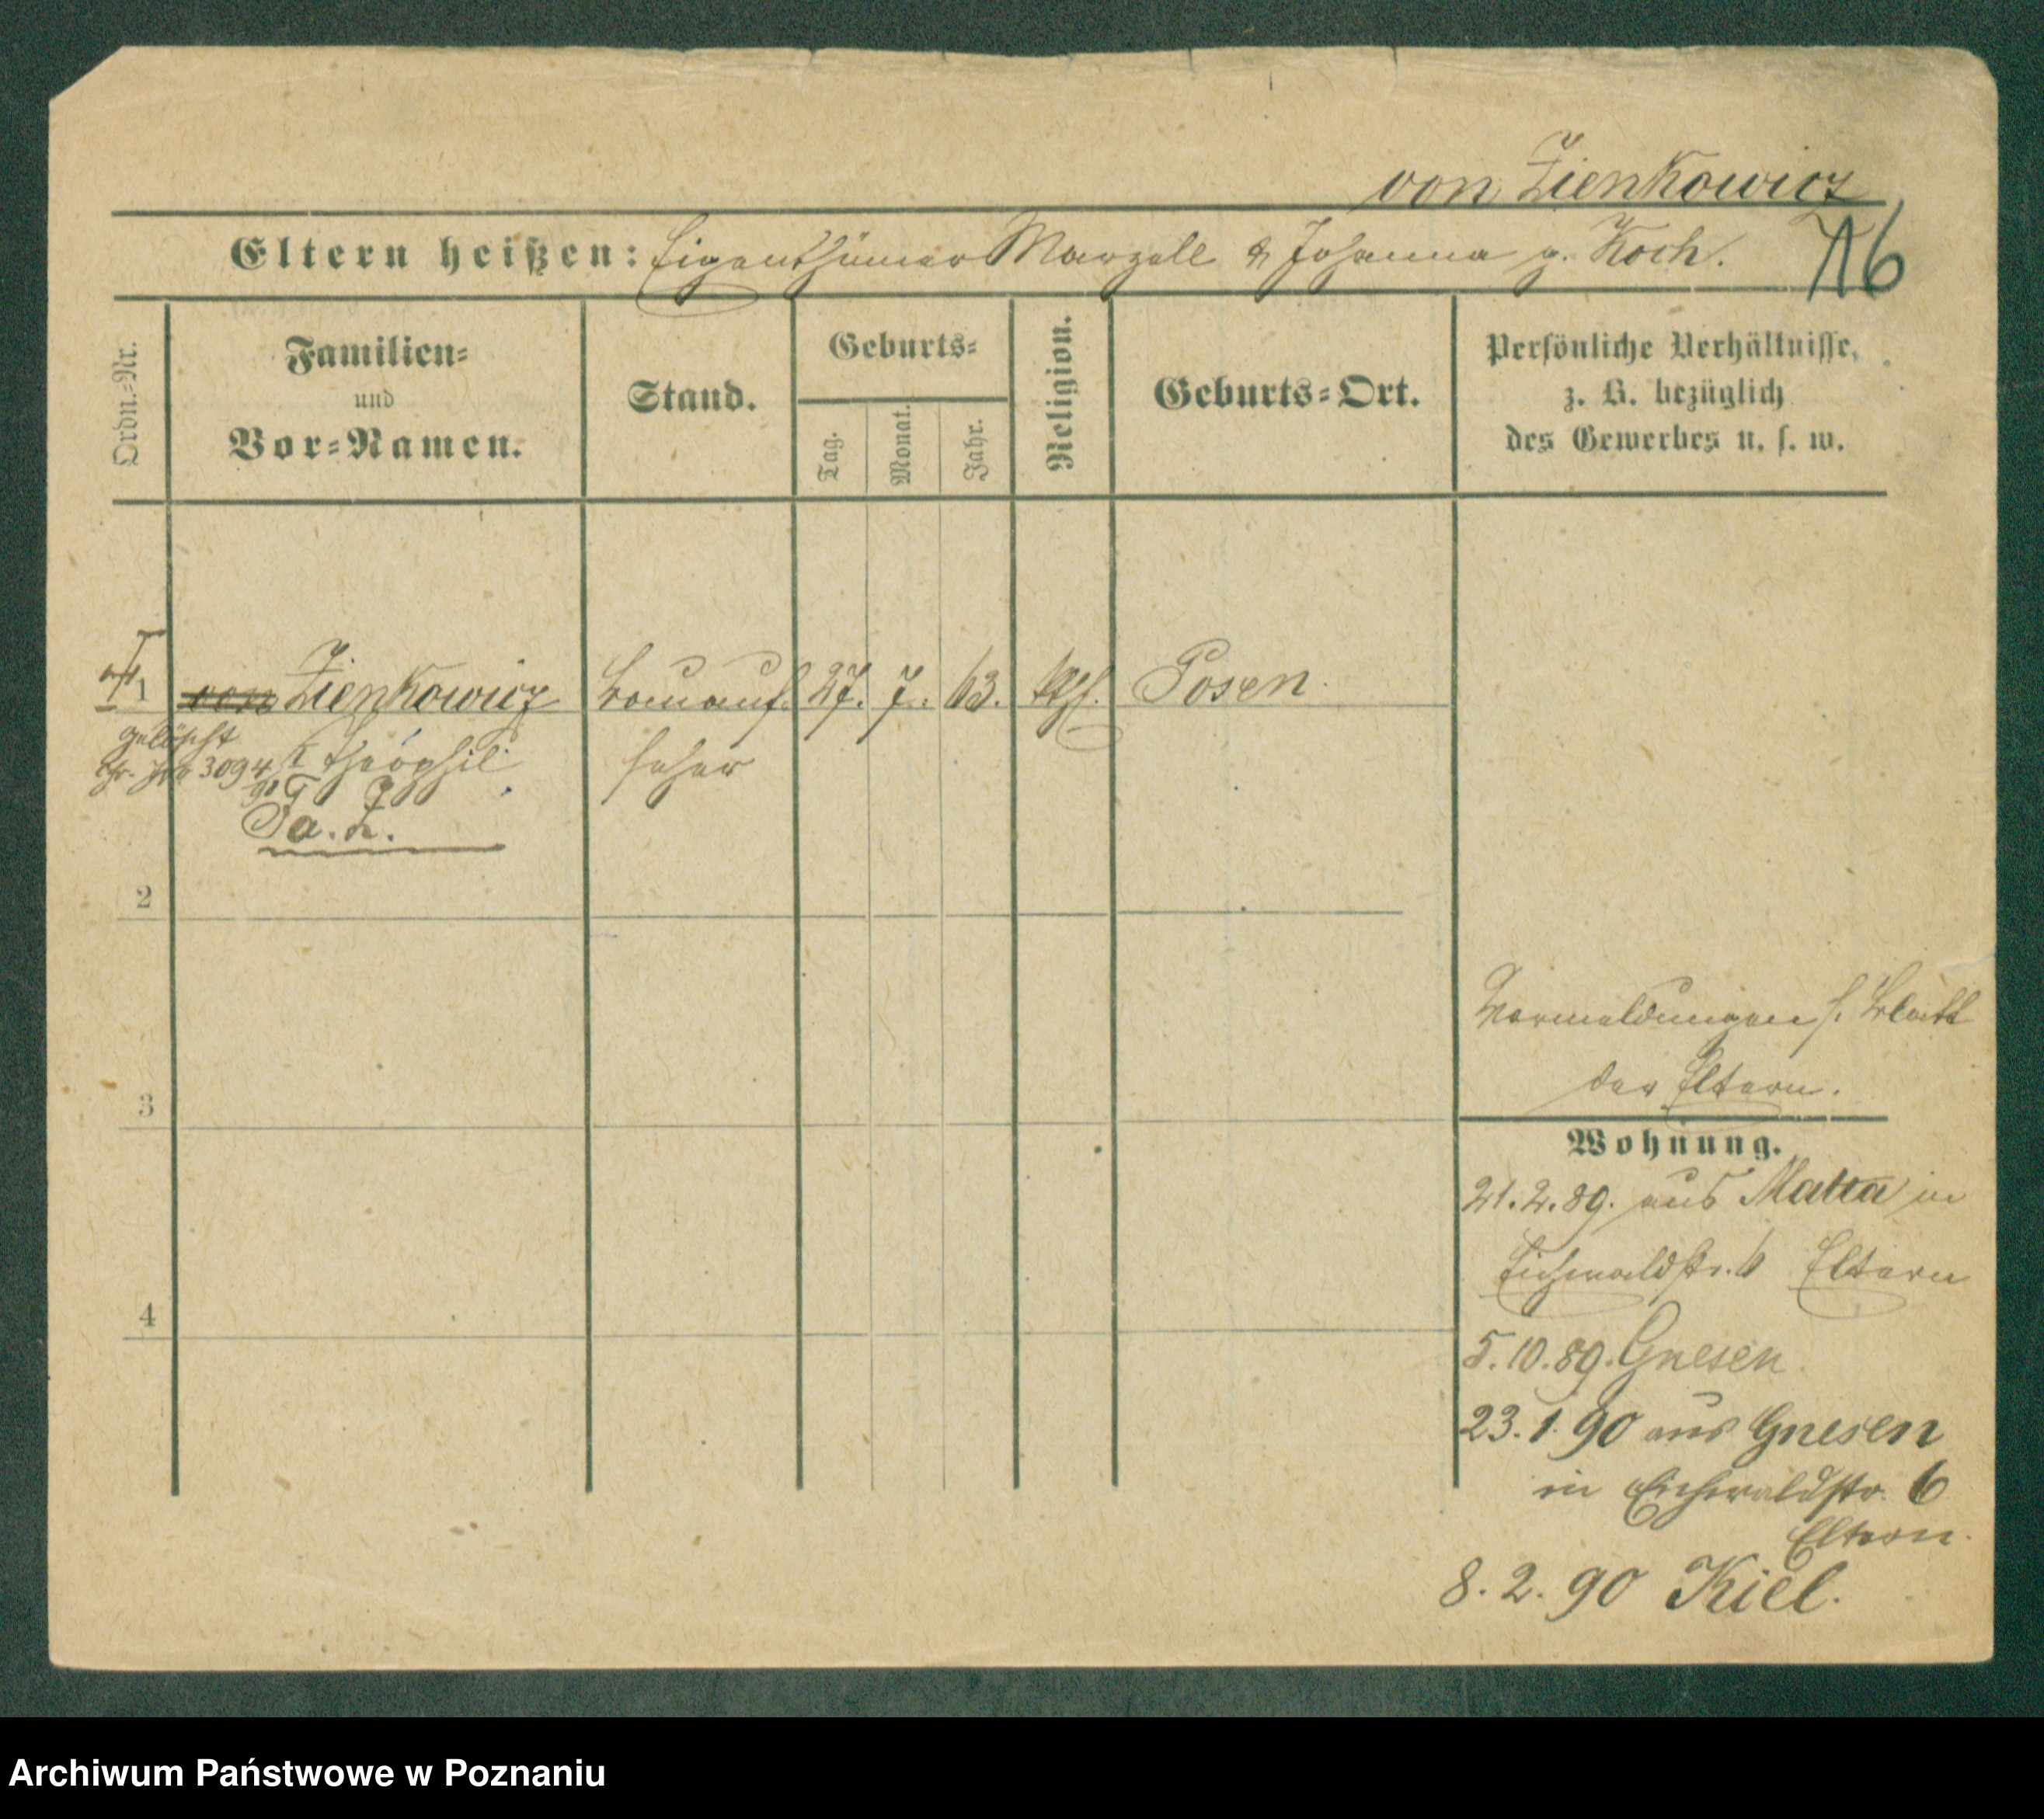 von Zienkowicz
Eltern heißen: Eigenthümer Marzell & Johanna g. Koch.
16
Ordn.-Nr.
Familien-
und
Vor-Namen.
Stand.
Geburts-
Tag.
Monat.
Jahr.
Religion.
Geburts-Ort.
Persönliche Verhältnisse,
z. B. bezüglich
des Gewerbes u. s. w.
1 von Zienkowicz Bauauf- 27. 7. 63. kth. Posen.
gelöscht
3094 Theophil seher
90
2
3
4
Vormeldungen s. Blatt
der Eltern.
Wohnung.
21.2.89. aus in
Eichwaldstr. 6 Eltern
5.10.89. Gnesen
23.1.90 aus Gnesen
in Eichwaldstr. 6
Eltern.
8.2.90 Kiel.
Archiwum Państwowe w Poznaniu